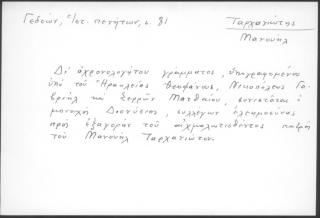 Γεδεών, Ἱστ. πενήτων, σ. 81
Ταρχανιώτης
Μανουήλ
Δι' ἀχρονολογήτου γράμματος, ὑπογραφομένου
ὑπό τοῦ Ἡρακλείας Θεοφάνους, Νικοπόλεως Γα-
βριήλ καί Σερρῶν Ματθαίου, συνιστᾶται ὁ
μοναχή Διονύσιος, συλλέγων ἐλεημοσύνας
πρός ἐξαγοράν τοῦ αἰχμαλωτισθέντος πατρός
του Μανουήλ Ταρχανιώτου.